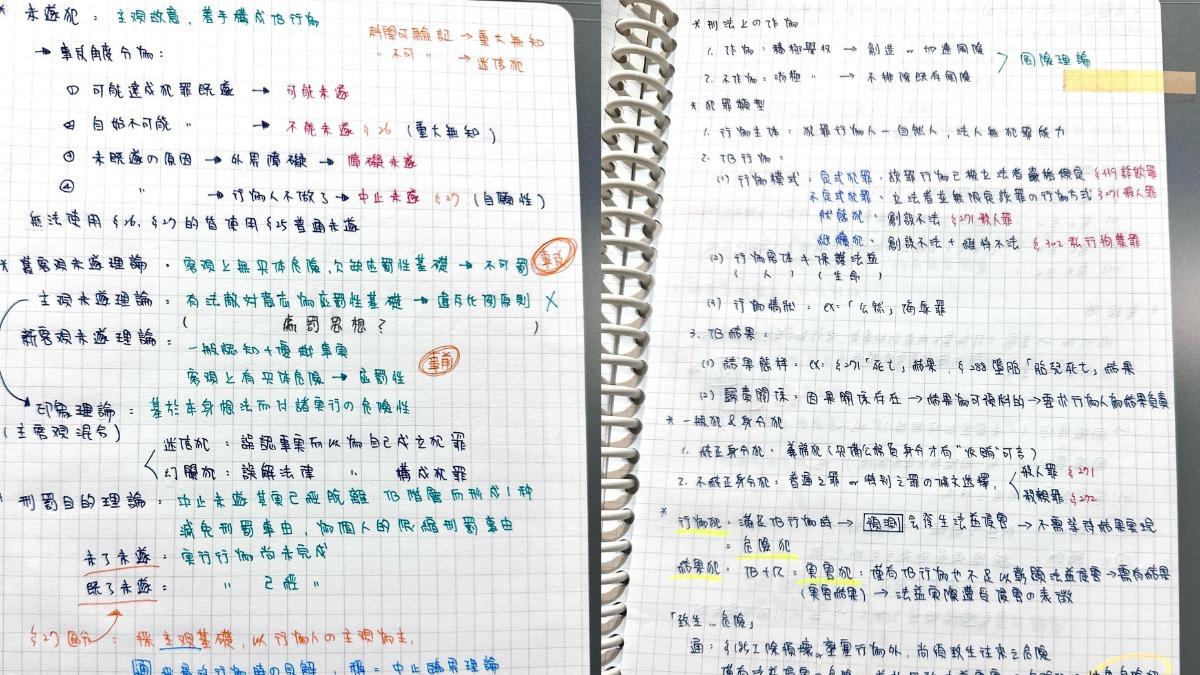 * 未遂犯：主观故意，着手構成TB行為
科學可驗証 → 重大無知
〃 不可 〃 → 迷信犯
→ 事攻角度分為：
① 可能達成犯罪既遂 → 可能未遂
② 自始不可能 〃 → 不能未遂 §26 (重大無知)
③ 未既遂の原因 → 外界障礙 → 障礙未遂
④ 〃 → 行為人不做了 → 中止未遂 §27 (自願性)
無法使用 §26、§27 的皆使用 §25 普通未遂
* 舊客观未遂理論：客观上無具体危險，欠缺应罰性基礎 → 不可罰 事後
主观未遂理論：有法敵对意志為应罰性基礎 → 違反比例原則 X
( 處罰思想？ )
新客观未遂理論：
一般認知+優越事實 事前
客观上有具体危險 → 应罰性
印象理論：基於本身想法而付諸実行の危險性
(主客观混合)
迷信犯：誤認事実而以為自己成立犯罪
幻覺犯：誤解法律 〃 構成犯罪
* 刑罰目的理論：中止未遂其实已經脫離TB階層而形成1种
減免刑罰事由，為個人的限縮刑罰事由
未了未遂：実行行為尚未完成
既了未遂：〃 已經 〃
§27區分：採主观基礎，以行為人の主观為主，
* 刑法上の作為
1. 作為：積極 → 創造 or 加速風險
2. 不作為：消極 〃 → 不排除既存風險
> 風險理論
* 犯罪類型
1. 行為主体：犯罪行為人－自然人，法人無犯罪能力
2. TB行為：
(1) 行為模式：定式犯罪：該罪行為已被立法者嚴格限定 §339 詐欺罪
不定式犯罪：立法者並無限定該罪の行為方式 §271 殺人罪
狀態犯：創設不法 §271 殺人罪
継續犯：創設不法+維持不法 §302 私行拘禁罪
(2) 行為客体+保護法益
(人) (生命)
(3) 行為情狀：ex:「公然」侮辱罪
3. TB結果：
(1) 結果態樣：ex: §271「死亡」結果，§288 墮胎「胎兒死亡」結果
(2) 歸責關係：因果關係存在 → 結果為可預料的 → 要求行為人為結果負責
* 一般犯&身分犯
1. 純正身分犯：義務犯 (具備公務員身分才有"收賄"可言)
2. 不純正身分犯：普通之罪 or 特別之罪の條文選擇，
殺人罪 §271
殺親罪 §272
* 行為犯：滿足TB行為時 → 預測 会產生法益侵害 → 不需等待結果実現
= 危險犯
結果犯：TB+R = 実害犯：僅有TB行為也不足以彰顯法益侵害 → 需有結果
(実害結果) → 法益実際遭受侵害の表徵
「致生…危險」
通：§185I 除損壞 or 壅塞行為外，尚須致生往來之危險